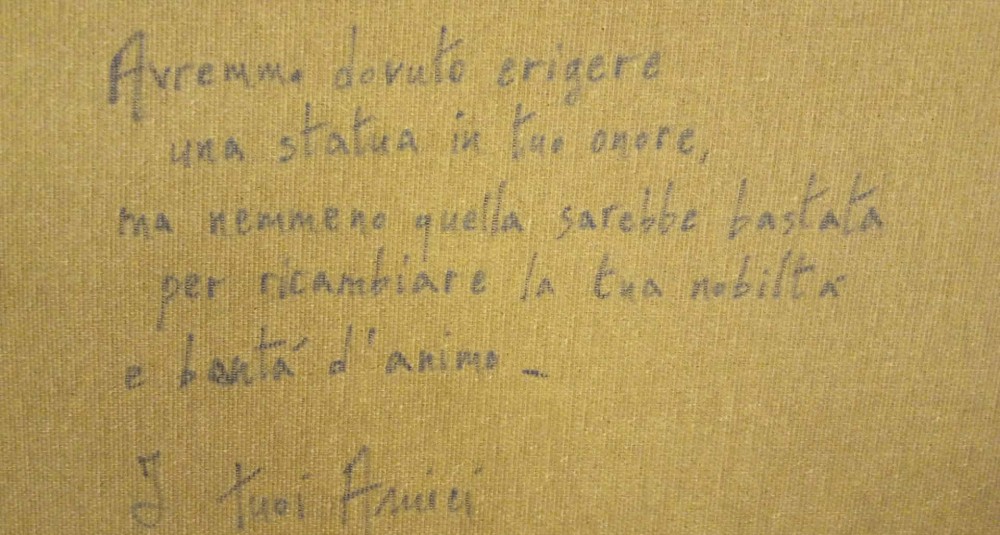 Avremmo dovuto erigere
una statua in tuo onore,
ma nemmeno quella sarebbe bastata
per ricambiare la tua nobiltá
e bontá d'animo _
I tuoi Amici